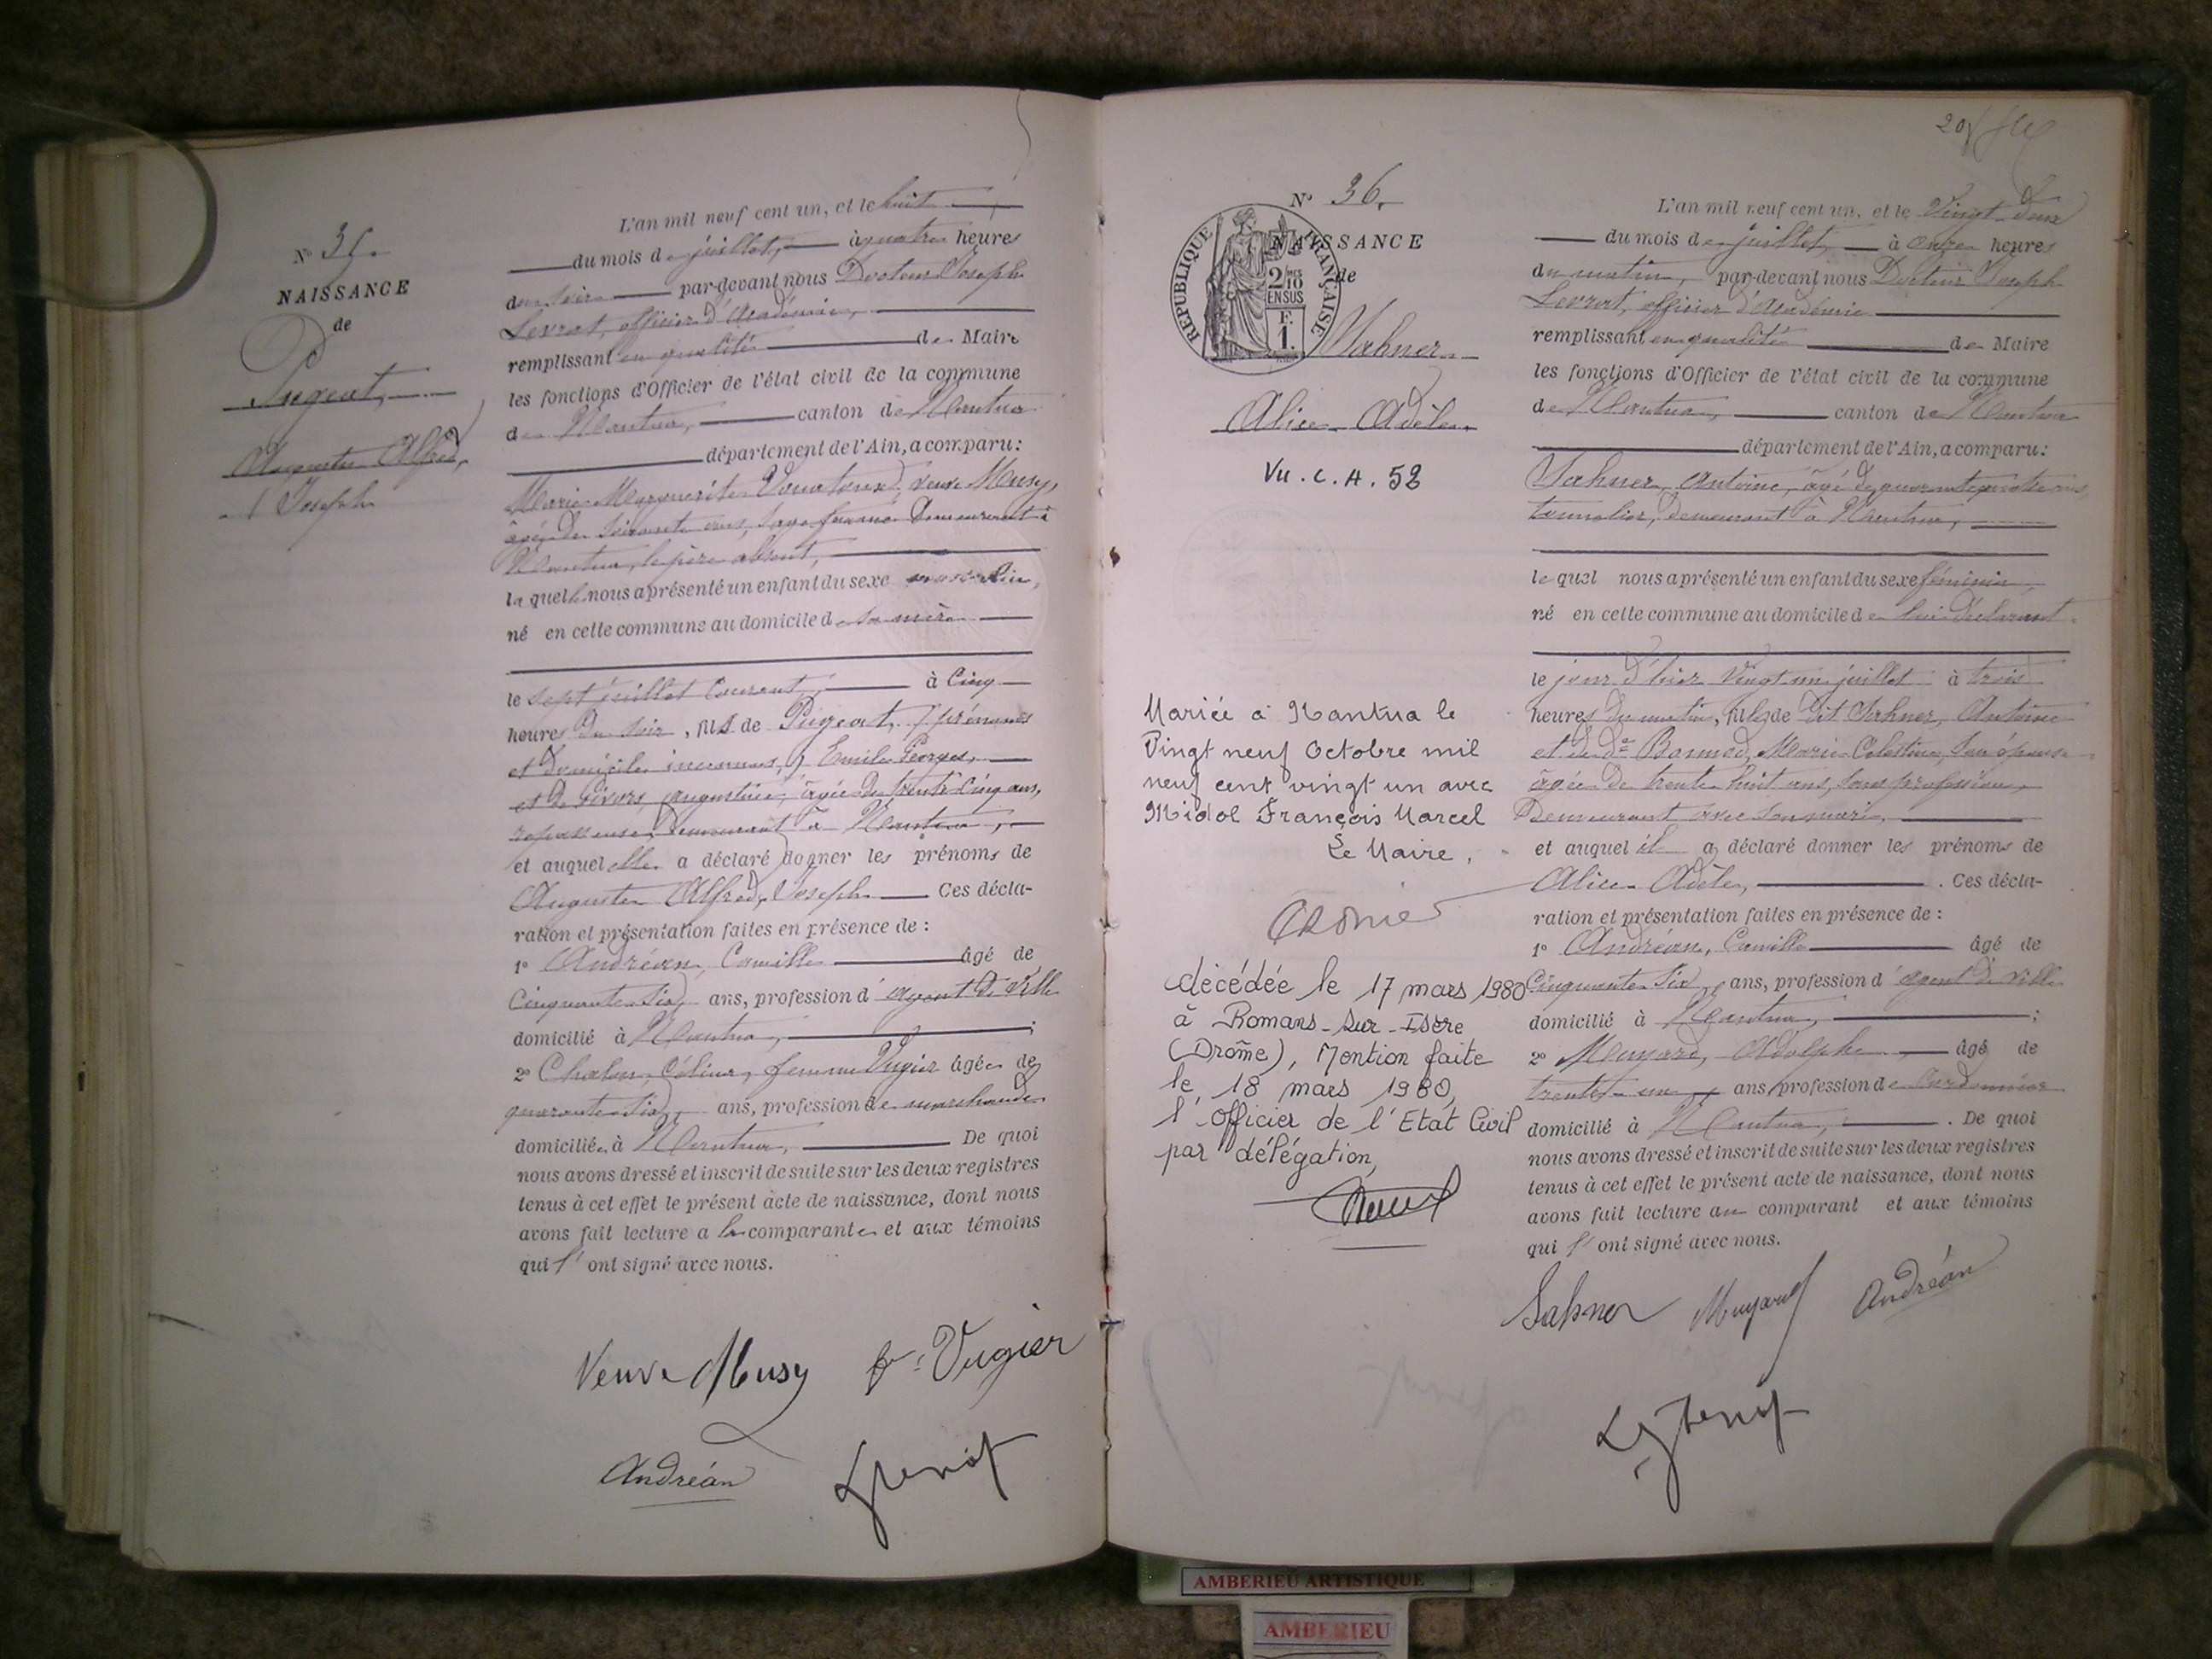 N° 35.
NAISSANCE
de
Pugeat,
Auguste Alfred,
Joseph
L'an mil neuf cent un, et le huit
du mois de juillet, à quatre heures
du soir par-devant nous Docteur Joseph
Levrat, officier d'Académie,
remplissant en qualité de Maire
les fonctions d'Officier de l'état civil de la commune
de Nantua, canton de Nantua
département de l'Ain, a comparu:
Marie Marguerite veuve Musy,
âgée de soixante ans, sage femme demeurant à
Nantua, le père absent,
laquelle nous a présenté un enfant du sexe masculin,
né en cette commune au domicile de sa mère
le sept juillet courant, à cinq
heures du soir, fils de Pugeat, (prénoms
et domicile inconnus,) Emile Georges,
et de augustine, âgée de trente cinq ans,
repasseuse, demeurant à Nantua,
et auquel elle a déclaré donner les prénoms de
Auguste Alfred, Joseph Ces décla-
ration et présentation faites en présence de :
1° Andréan, Camille âgé de
cinquante six, ans, profession d'agent de ville
domicilié à Nantua, ;
2° Chalon, Célina, femme Vugier âgée de
quarante six, ans, profession de marchande
domiciliée à Nantua, De quoi
nous avons dressé et inscrit de suite sur les deux registres
tenus à cet effet le présent acte de naissance, dont nous
avons fait lecture a la comparante et aux témoins
qui l'ont signé avec nous.
Veuve Musy fe Vugier
Andréan
20
N° 36.
NAISSANCE
de
RÉPUBLIQUE FRANÇAISE
2/10 EN SUS
F. 1.
Sahner
Alice Adèle
Vu. C. A. 52
Mariée à Nantua le
Vingt neuf Octobre mil
neuf cent vingt un avec
Midol François Marcel
Le Maire,
décédée le 17 mars 1980
à Romans-sur-Isère
(Drôme), Mention faite
le 18 mars 1980,
l'officier de l'Etat Civil
par délégation,
L'an mil neuf cent un, et le Vingt deux
du mois de juillet, à onze heures
du matin, par-devant nous Docteur Joseph
Levrat, officier d'Académie
remplissant en qualité de Maire
les fonctions d'Officier de l'état civil de la commune
de Nantua, canton de Nantua
département de l'Ain, a comparu:
Sahner, Antoine, âgé de quarante quatre ans,
tonnelier, demeurant à Nantua,
lequel nous a présenté un enfant du sexe féminin,
né en cette commune au domicile de lui déclarant
le jour d'hier vingt un juillet à trois
heures du matin, fille de dit Sahner, Antoine
et de de Bonnod, Marie Célestine, son épouse
âgée de trente huit ans, sans profession,
Demeurant avec son mari,
et auquel il a déclaré donner les prénoms de
Alice Adèle, . Ces décla-
ration et présentation faites en présence de :
1° Andréan, Camille âgé de
cinquante six, ans, profession d'agent de ville
domicilié à Nantua, ;
2° Muyard, Adolphe âgé de
trente un ans, profession de cordonnier
domicilié à Nantua, . De quoi
nous avons dressé et inscrit de suite sur les deux registres
tenus à cet effet le présent acte de naissance, dont nous
avons fait lecture au comparant et aux témoins
qui l'ont signé avec nous.
Sahner Muyard Andréan
AMBERIEU ARTISTIQUE
AMBERIEU